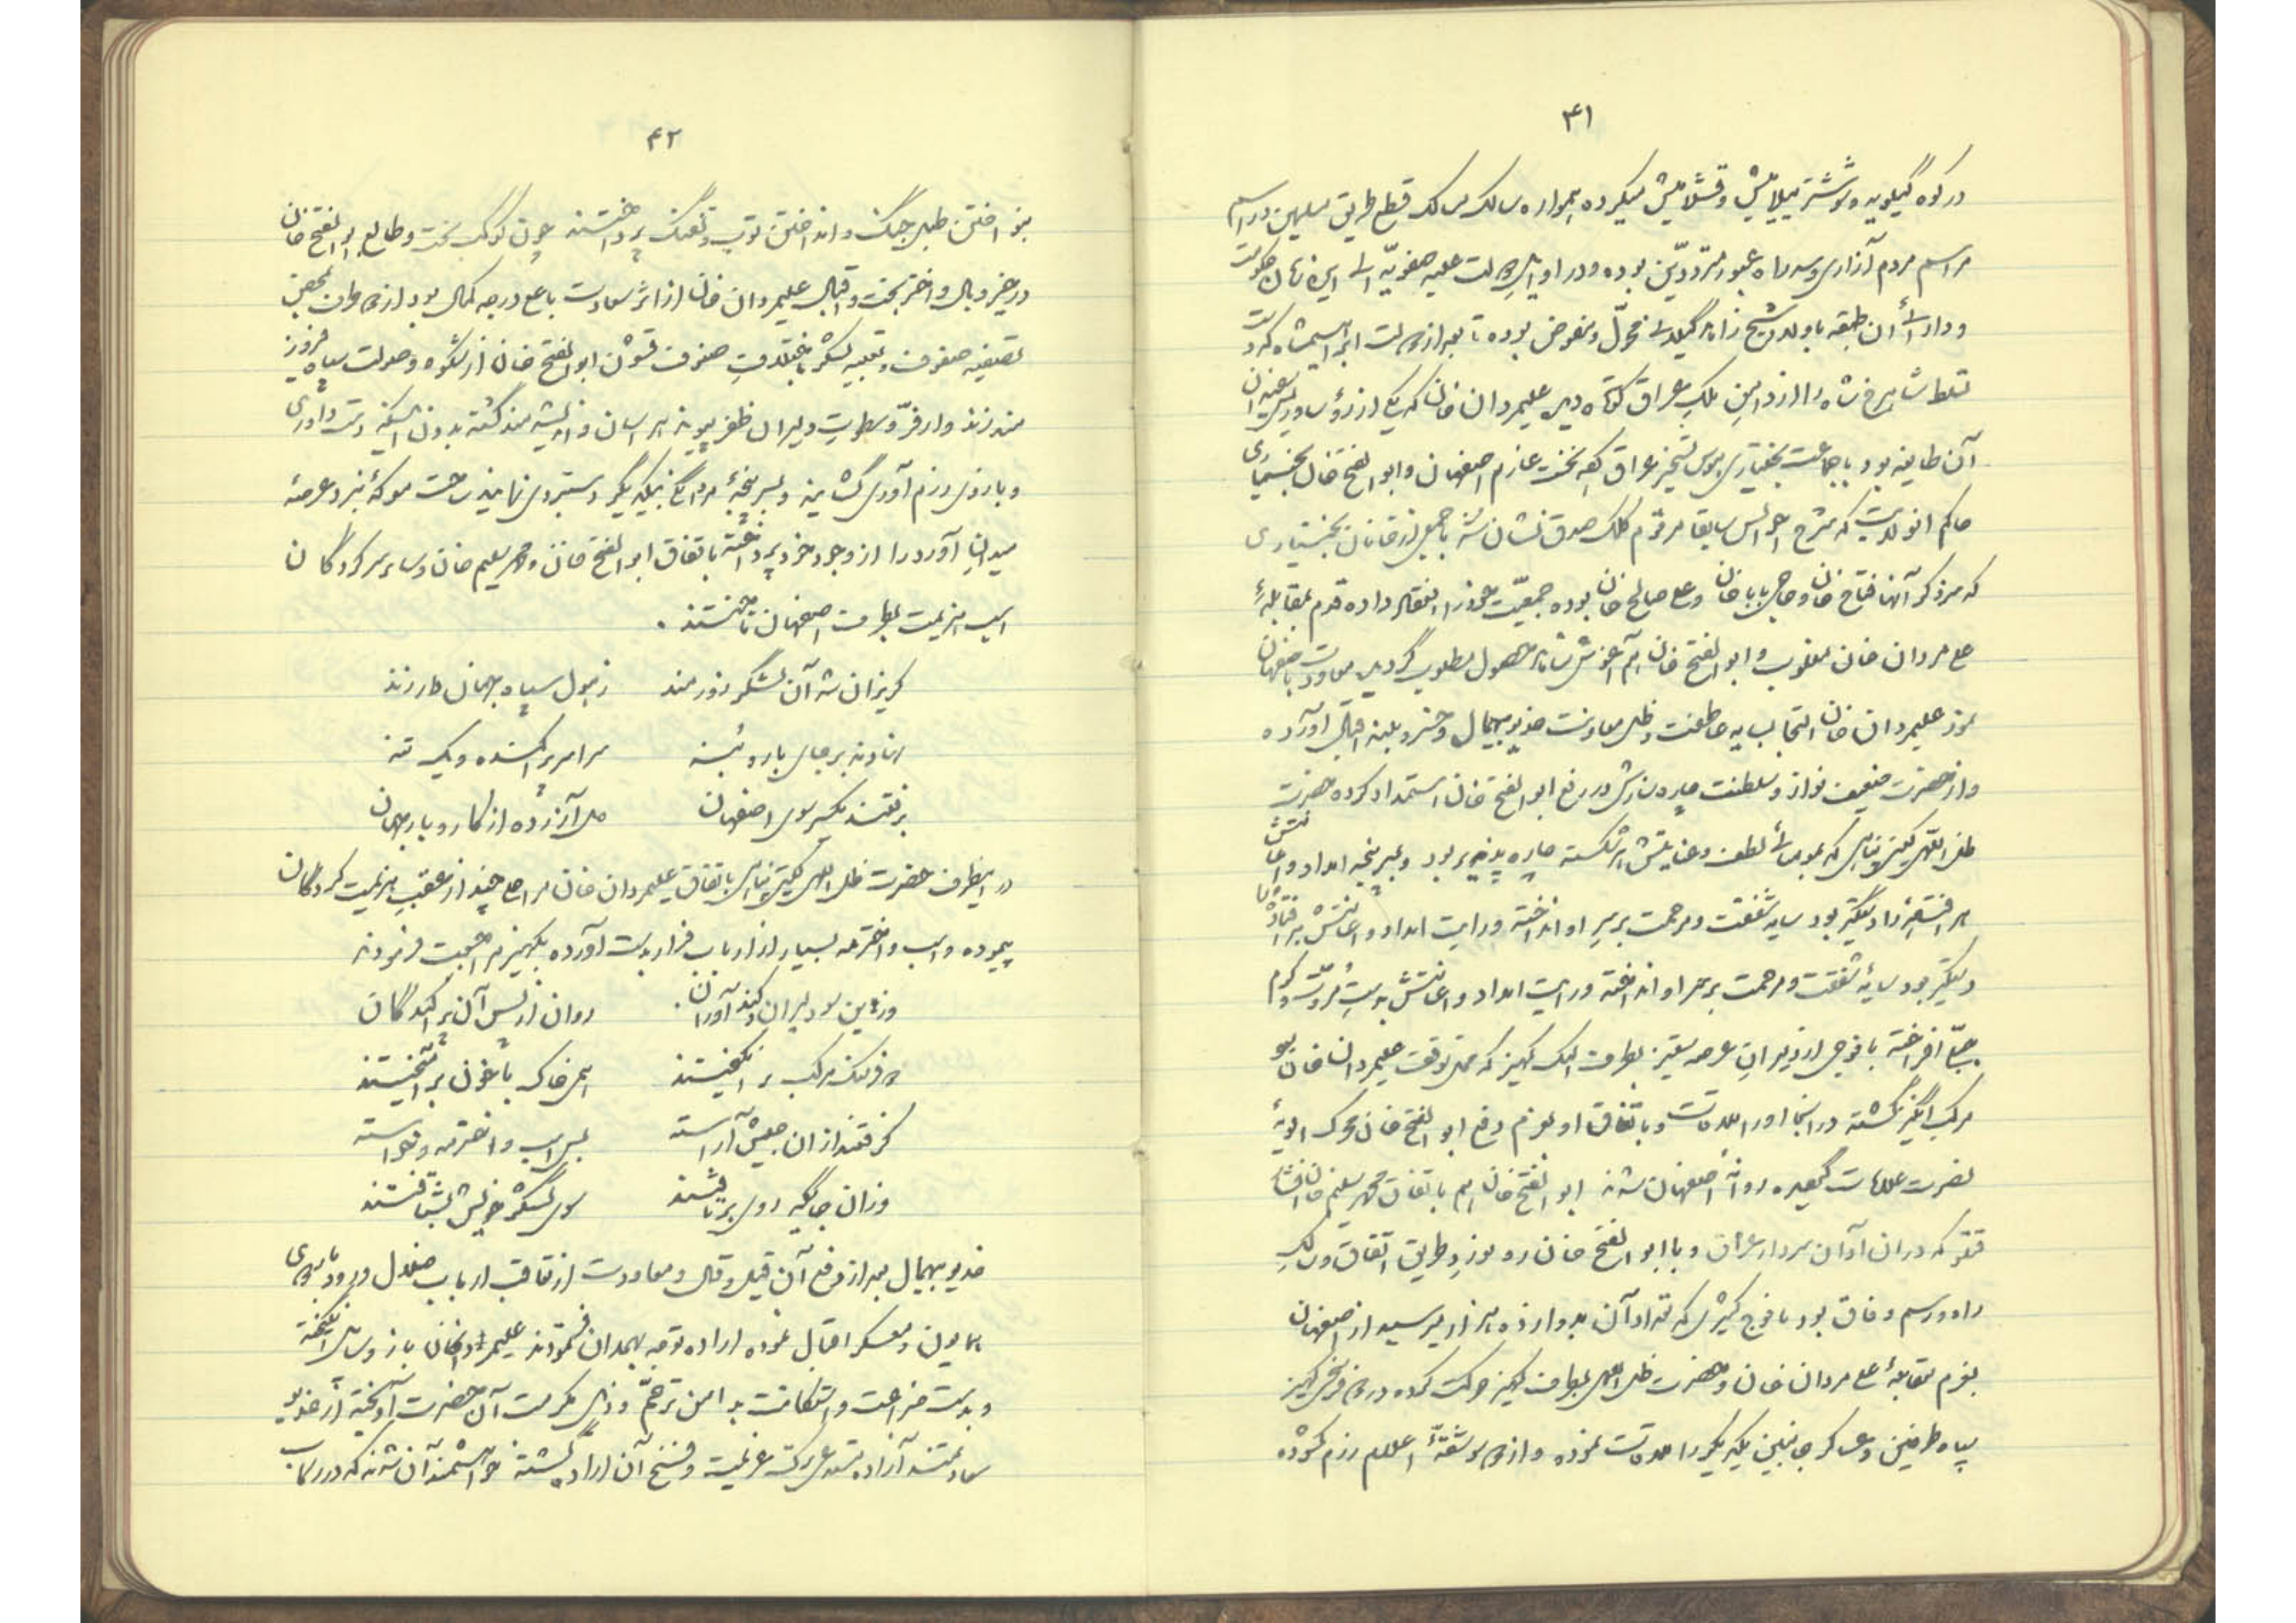 ۴۱
در کوه گیلویه و شوشتر ییلامیش و قشلامیش میکرده همواره سالک مسالک قطع طریق مسلمین و راسم
مراسم مردم آزاری و سد راه عبور مترددین بوده و در اوایل دولت علیه صفویه الی این زمان حکومت
و دارائی آن طبقه باولاد شیخ زاهد گیلانی محول و مفوض بوده تا بعد از دولت ابراهیمشاه که دست
تسلط شاهرخ شاه را از دامن ملک عراق کوتاه دید علیمردان خان که یکی از رؤسا و ریش سفیدان
آن طایفه بود با جماعت بختیاری بهوس تسخیر عراق عازم اصفهان و ابوالفتح خان بختیاری
حاکم آنولایت که شرح احوالش سابقا مرقوم کلک صدق نشان شد با جمعی از خانان بختیاری
که سرذکر آنها فتاح خان و حاجی بابا خان و علی صالح خان بوده جمعیت خود را انعقاد داده قدم بمقابلهٔ
علی مردان خان مغلوب و ابوالفتح خان هم آغوش شاهد حصول مطلوب گردیده معاودت باصفهان
نمود علیمردان خان التجا بسایه عاطفت و ظل معاونت خدیو بیهمال و خسرو بلند اقبال آورده
و از حضرت ضعیف نواز و سلطنت چاره سازش در رفع ابوالفتح خان استمداد کرده حضرت
ظل اللهی گیتی پناهی که بمومیائی لطف و عنایتش هر شکسته چاره پذیر بود و بسرپنجه امداد و اعانتش
هر افتاده را دستگیر بود سایه شفقت و مرحمت بر سر او انداخته و رایت امداد و اعانتش هر افتاده را
دستگیر بود سایهٔ شفقت و مرحمت بر سر او انداخته و رایت امداد و اعانتش بدست مروت و کرم
افراخته با فوجی از دلیران عرصه ستیز بطرف الکه کهیز که محل توقف علیمردان خان بود
مرکب انگیز گشته در آنجا او را ملاقات و باتفاق او بعزم دفع ابوالفتح خان محرک الویهٔ
نصرت علامات گردیده روانهٔ اصفهان شدند ابوالفتح خان هم باتفاق محمد سلیم خان افشار
قتقو که در آن اوان سردار عراق و با ابوالفتح خان ره نورد طریق اتفاق و سالک
راه و رسم وفاق بود با فوج کثیری که تعداد آن بدوازده هزار میرسید از اصفهان
بعزم مقابلهٔ علی مردان خان و حضرت ظل اللهی بطرف کهیز حرکت کرده در دو فرسخی کهیز
سپاه طرفین و عساکر جانبین یکدیگر را ملاقات نموده و از دو سو شقهٔ اعلام رزم گشوده
۴۲
بنواختن طبل جنگ و انداختن توپ و تفنگ پرداختند چون کوکب بخت و طالع ابوالفتح خان
در حیز وبال و اختر بخت و اقبال علیمردان خان از اثر سعادت با علی درجه کمال بود از دو طرف بمحض
تصفیه صفوف و تعبیه لشکر باختلاف صنوف قشون ابوالفتح خان از شکوه و صولت سپاه فیروز
مند زند و از فر و سطوت دلیران ظفر پیوند هراسان و اندیشه مند گشته بدون اینکه دست داوری
و بازوی رزم آوری گشایند و بسرپنجهٔ مردانگی بیکدیگر دستبردی نمایند ساحت معرکهٔ نبرد و عرصهٔ
میدان آورد را از وجود خود پرداخته باتفاق ابوالفتح خان و محمد سلیم خان و سایر سرکردگان
اسب هزیمت بطرف اصفهان تاختند .
گریزان شد آن لشگر زورمند زهول سپاه جهان دار زند
نهادند بر جای بار و بنه سراسر پراکنده و یک تنه
برفتند یکسر سوی اصفهان دل آزرده از کار و بار جهان
در اینطرف حضرت ظل اللهی گیتی پناهی باتفاق علیمردان خان مراحلی چند از عقب هزیمت کردگان
پیموده و اسب و اخترمه بسیار از ارباب فرار بدست آورده بکهیز مراجعت فرمودند
وزین سو دلیران کندآوران . روان از پس آن پراکندگان
دو فرسنگ مرکب برانگیختند همی خاک با خون برآمیختند
گرفتند از آن جیش آراسته بسی اسب و اخترمه و خواسته
وزان جایگه روی برتافتند سوی لشگر خویش بشتافتند
خدیو بیهمال بعد از دفع آن قیل و قال و معاودت از تعاقب ارباب ضلال و ورود باردوی
همایون و معسکر اقبال نموده اراده توجه بهمدان فرمودند علیمردانخان باز وسایل انگیخته
و بدست ضراعت و استکانت بدامن ترحم و ذیل مکرمت آن حضرت آویخته از خدیو
سعادتمند آزاده مستدعی ترک عزیمت و فسخ آن اراده گشته خواهشمند آن شدند که در رکاب